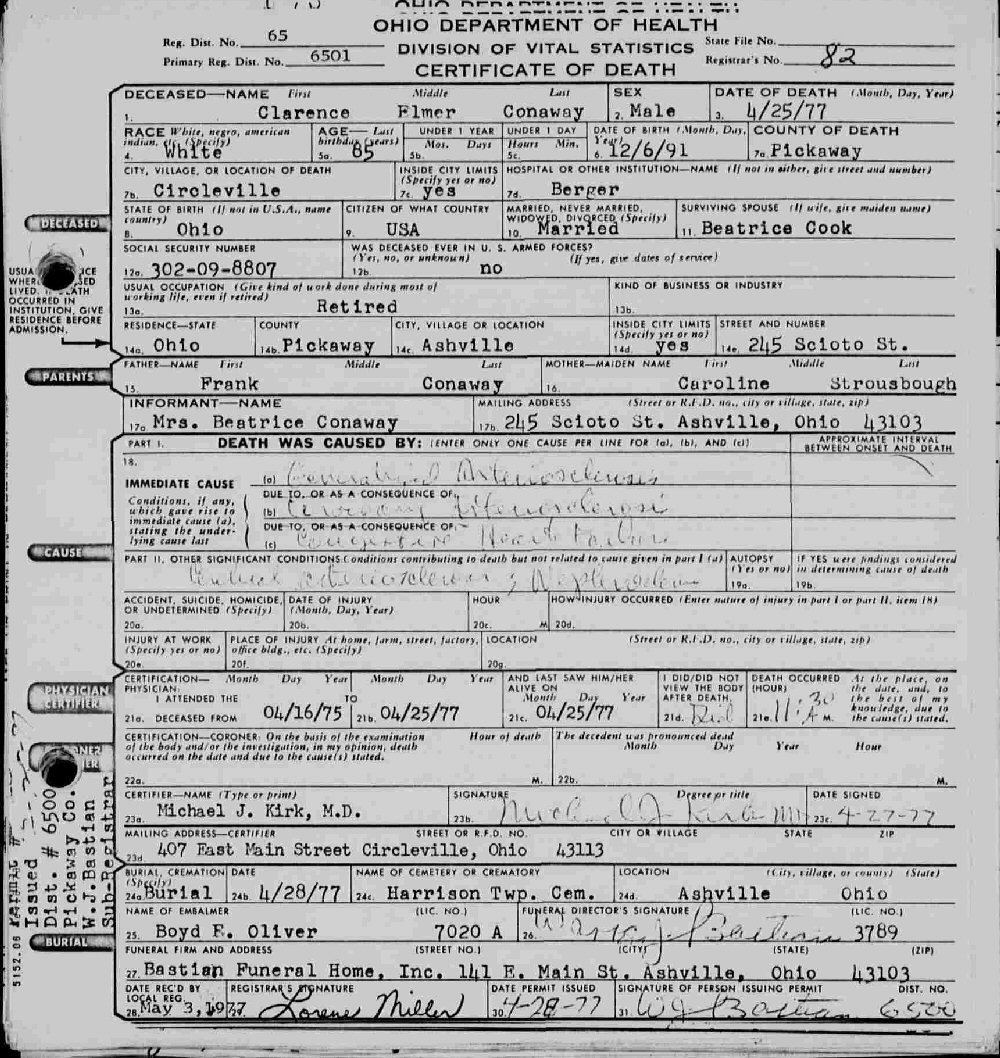 OHIO DEPARTMENT OF HEALTH
DIVISION OF VITAL STATISTICS
CERTIFICATE OF DEATH
Reg. Dist. No. 65
Primary Reg. Dist. No. 6501
State File No.
Registrar's No. 82
DECEASED—NAME First Middle Last SEX DATE OF DEATH (Month, Day, Year)
1. Clarence Elmer Conaway 2. Male 3. 4/25/77
RACE White, negro, american indian, etc. (Specify) AGE—Last birthday (years) UNDER 1 YEAR UNDER 1 DAY DATE OF BIRTH (Month, Day, Year) COUNTY OF DEATH
Mos. Days Hours Min.
4. White 5a. 85 5b. 5c. 6. 12/6/91 7a. Pickaway
CITY, VILLAGE, OR LOCATION OF DEATH INSIDE CITY LIMITS (Specify yes or no) HOSPITAL OR OTHER INSTITUTION—NAME (If not in either, give street and number)
7b. Circleville 7c. yes 7d. Berger
DECEASED
STATE OF BIRTH (If not in U.S.A., name country) CITIZEN OF WHAT COUNTRY MARRIED, NEVER MARRIED, WIDOWED, DIVORCED (Specify) SURVIVING SPOUSE (If wife, give maiden name)
8. Ohio 9. USA 10. Married 11. Beatrice Cook
SOCIAL SECURITY NUMBER WAS DECEASED EVER IN U. S. ARMED FORCES?
(Yes, no, or unknown) (If yes, give dates of service)
12a. 302-09-8807 12b. no
USUAL OCCUPATION (Give kind of work done during most of working life, even if retired) KIND OF BUSINESS OR INDUSTRY
13a. Retired 13b.
LIVED.
OCCURRED IN
INSTITUTION, GIVE
RESIDENCE BEFORE
ADMISSION.
RESIDENCE—STATE COUNTY CITY, VILLAGE OR LOCATION INSIDE CITY LIMITS (Specify yes or no) STREET AND NUMBER
14a. Ohio 14b. Pickaway 14c. Ashville 14d. yes 14e. 245 Scioto St.
PARENTS
FATHER—NAME First Middle Last MOTHER—MAIDEN NAME First Middle Last
15. Frank Conaway 16. Caroline Strousbough
INFORMANT—NAME MAILING ADDRESS (Street or R.F.D. no., city or village, state, zip)
17a. Mrs. Beatrice Conaway 17b. 245 Scioto St. Ashville, Ohio 43103
PART I. DEATH WAS CAUSED BY: [ENTER ONLY ONE CAUSE PER LINE FOR (a), (b), AND (c)] APPROXIMATE INTERVAL BETWEEN ONSET AND DEATH
18.
IMMEDIATE CAUSE (a) Generalized Arteriosclerosis
Conditions, if any, which gave rise to immediate cause (a), stating the underlying cause last
DUE TO, OR AS A CONSEQUENCE OF:
(b) Coronary Arteriosclerosis
DUE TO, OR AS A CONSEQUENCE OF:
(c) Congestive Heart Failure
CAUSE
PART II. OTHER SIGNIFICANT CONDITIONS: Conditions contributing to death but not related to cause given in part I (a) AUTOPSY (Yes or no) IF YES were findings considered in determining cause of death
Cerebral arteriosclerosis
19a. 19b.
ACCIDENT, SUICIDE, HOMICIDE, OR UNDETERMINED (Specify) DATE OF INJURY (Month, Day, Year) HOUR HOW INJURY OCCURRED (Enter nature of injury in part I or part II, item 18)
20a. 20b. 20c. M. 20d.
INJURY AT WORK (Specify yes or no) PLACE OF INJURY At home, farm, street, factory, office bldg., etc. (Specify) LOCATION (Street or R.F.D. no., city or village, state, zip)
20e. 20f. 20g.
PHYSICIAN CERTIFIER
CERTIFICATION— PHYSICIAN: Month Day Year Month Day Year AND LAST SAW HIM/HER ALIVE ON Month Day Year I DID/DID NOT VIEW THE BODY AFTER DEATH. DEATH OCCURRED (HOUR) At the place, on the date, and, to the best of my knowledge, due to the cause(s) stated.
I ATTENDED THE TO
21a. DECEASED FROM 04/16/75 21b. 04/25/77 21c. 04/25/77 21d. Did 21e. 11:30 A M.
CERTIFICATION—CORONER: On the basis of the examination of the body and/or the investigation, in my opinion, death occurred on the date and due to the cause(s) stated. Hour of death The decedent was pronounced dead
Month Day Year Hour
22a. M. 22b. M.
CERTIFIER—NAME (Type or print) SIGNATURE Degree or title DATE SIGNED
23a. Michael J. Kirk, M.D. 23b. Michael J. Kirk MD 23c. 4-27-77
MAILING ADDRESS—CERTIFIER STREET OR R.F.D. NO. CITY OR VILLAGE STATE ZIP
23d. 407 East Main Street Circleville, Ohio 43113
BURIAL, CREMATION (Specify) DATE NAME OF CEMETERY OR CREMATORY LOCATION (City, village, or county) (State)
24a. Burial 24b. 4/28/77 24c. Harrison Twp. Cem. 24d. Ashville Ohio
NAME OF EMBALMER (LIC. NO.) FUNERAL DIRECTOR'S SIGNATURE (LIC. NO.)
25. Boyd E. Oliver 7020 A 26. Bastian 3789
BURIAL
FUNERAL FIRM AND ADDRESS (STREET NO.) (CITY) (STATE) (ZIP)
27. Bastian Funeral Home, Inc. 141 E. Main St. Ashville, Ohio 43103
DATE REC'D BY LOCAL REG. REGISTRAR'S SIGNATURE DATE PERMIT ISSUED SIGNATURE OF PERSON ISSUING PERMIT DIST. NO.
28. May 3, 1977 Lorene Miller 30. 4-28-77 31. W J Bastian 6500
Permit #
Issued
Dist. # 6500
Pickaway Co.
W.J.Bastian
Sub-Registrar
5152.06